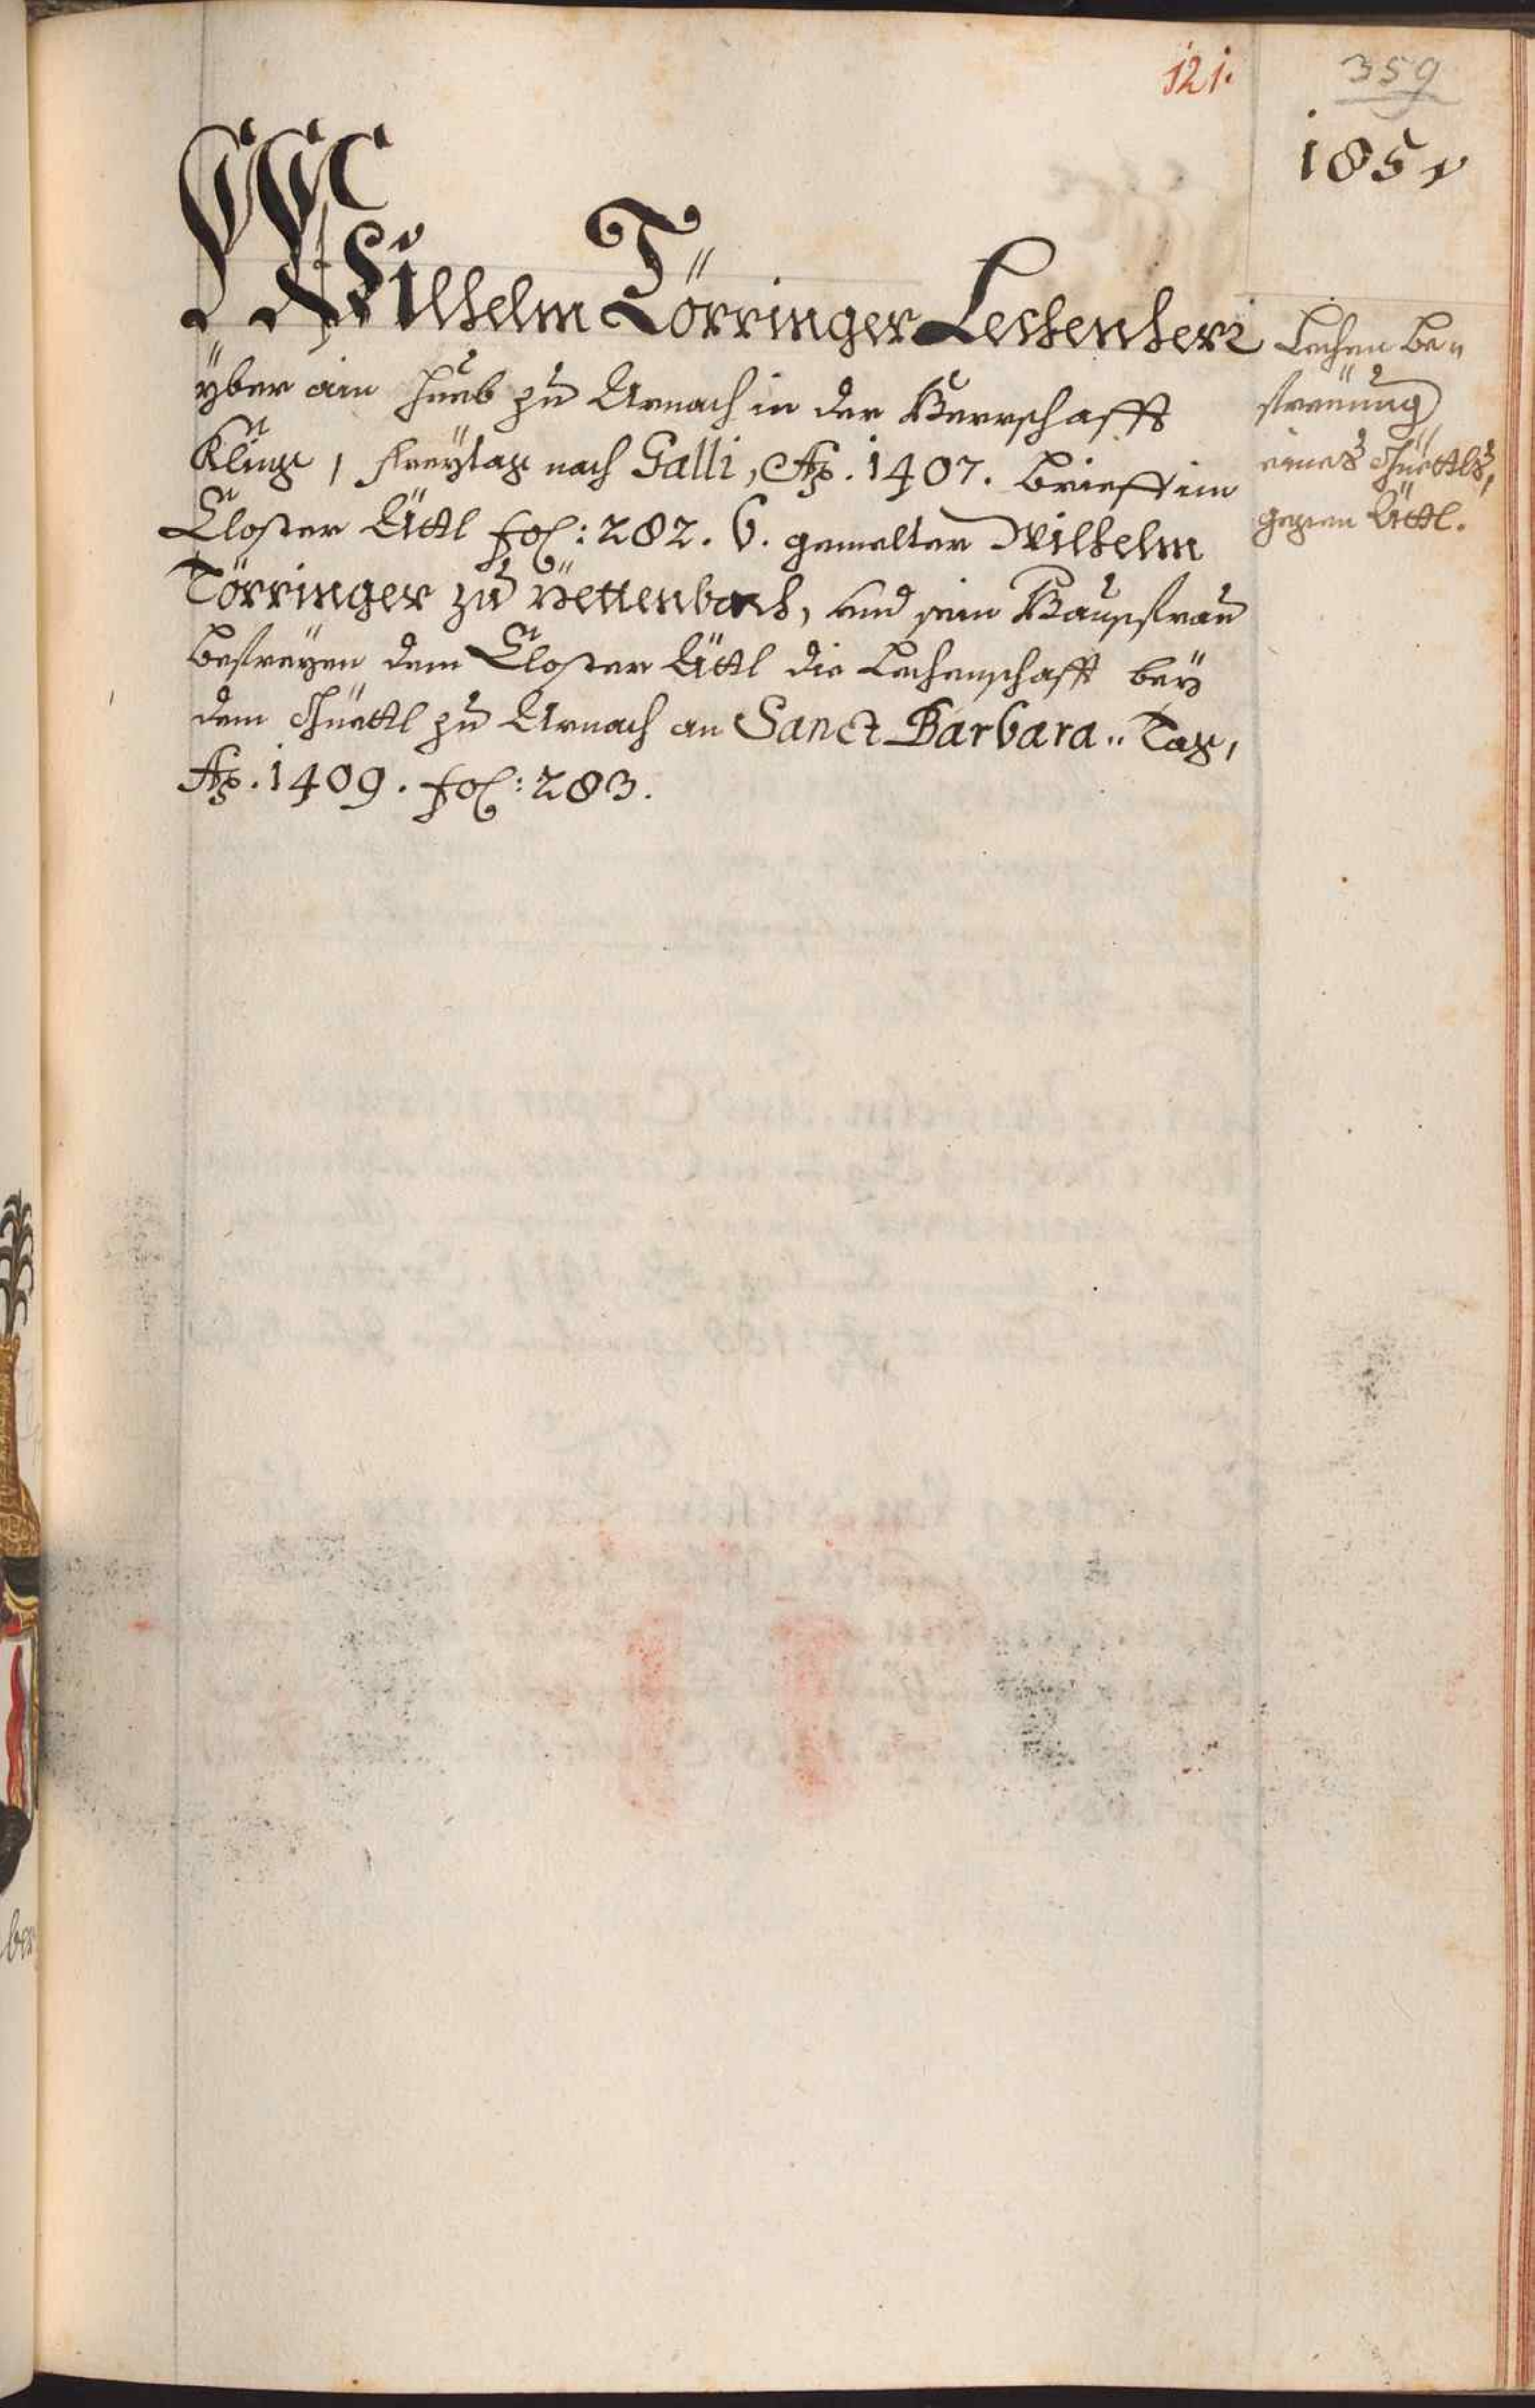 121.
359
185v
Wilhelm Törringer Lechenherr
yber ain Hueb zu Urnach in der Herrschafft
Kling, Freytag nach Galli, Aô. 1407. Brieff im
Closter Ättl fol: 282. 6. gemelter Wilhelm
Törringer zu Yettenbach, und sein Hausfrau
befreyen dem Closter Ättl die Lechenschafft bey
dem Guettl zu Urnach an Sanct Barbara Tag,
Aô. 1409. fol: 283.
Lechen Be„
freyung
eines Guettls,
gegen Ättl.